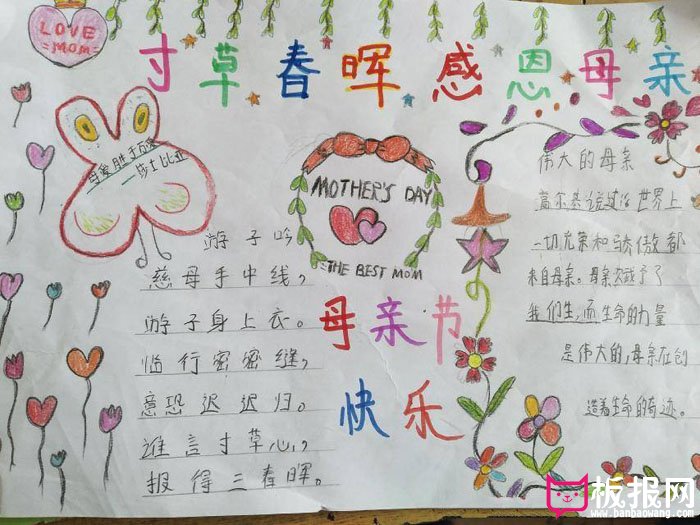 LOVE
MOM
寸草春晖感恩母亲
母爱胜于万爱
莎士比亚
MOTHER'S DAY
THE BEST MOM
游子吟
慈母手中线,
游子身上衣。
临行密密缝,
意恐迟迟归。
谁言寸草心,
报得三春晖。
母亲节
快乐
伟大的母亲
高尔基说过:世界上
一切光荣和骄傲都
来自母亲。母亲不
我们生,而生命的力量
是伟大的,母亲在创
造着生命的奇迹。
板报网
www.banbaowang.com